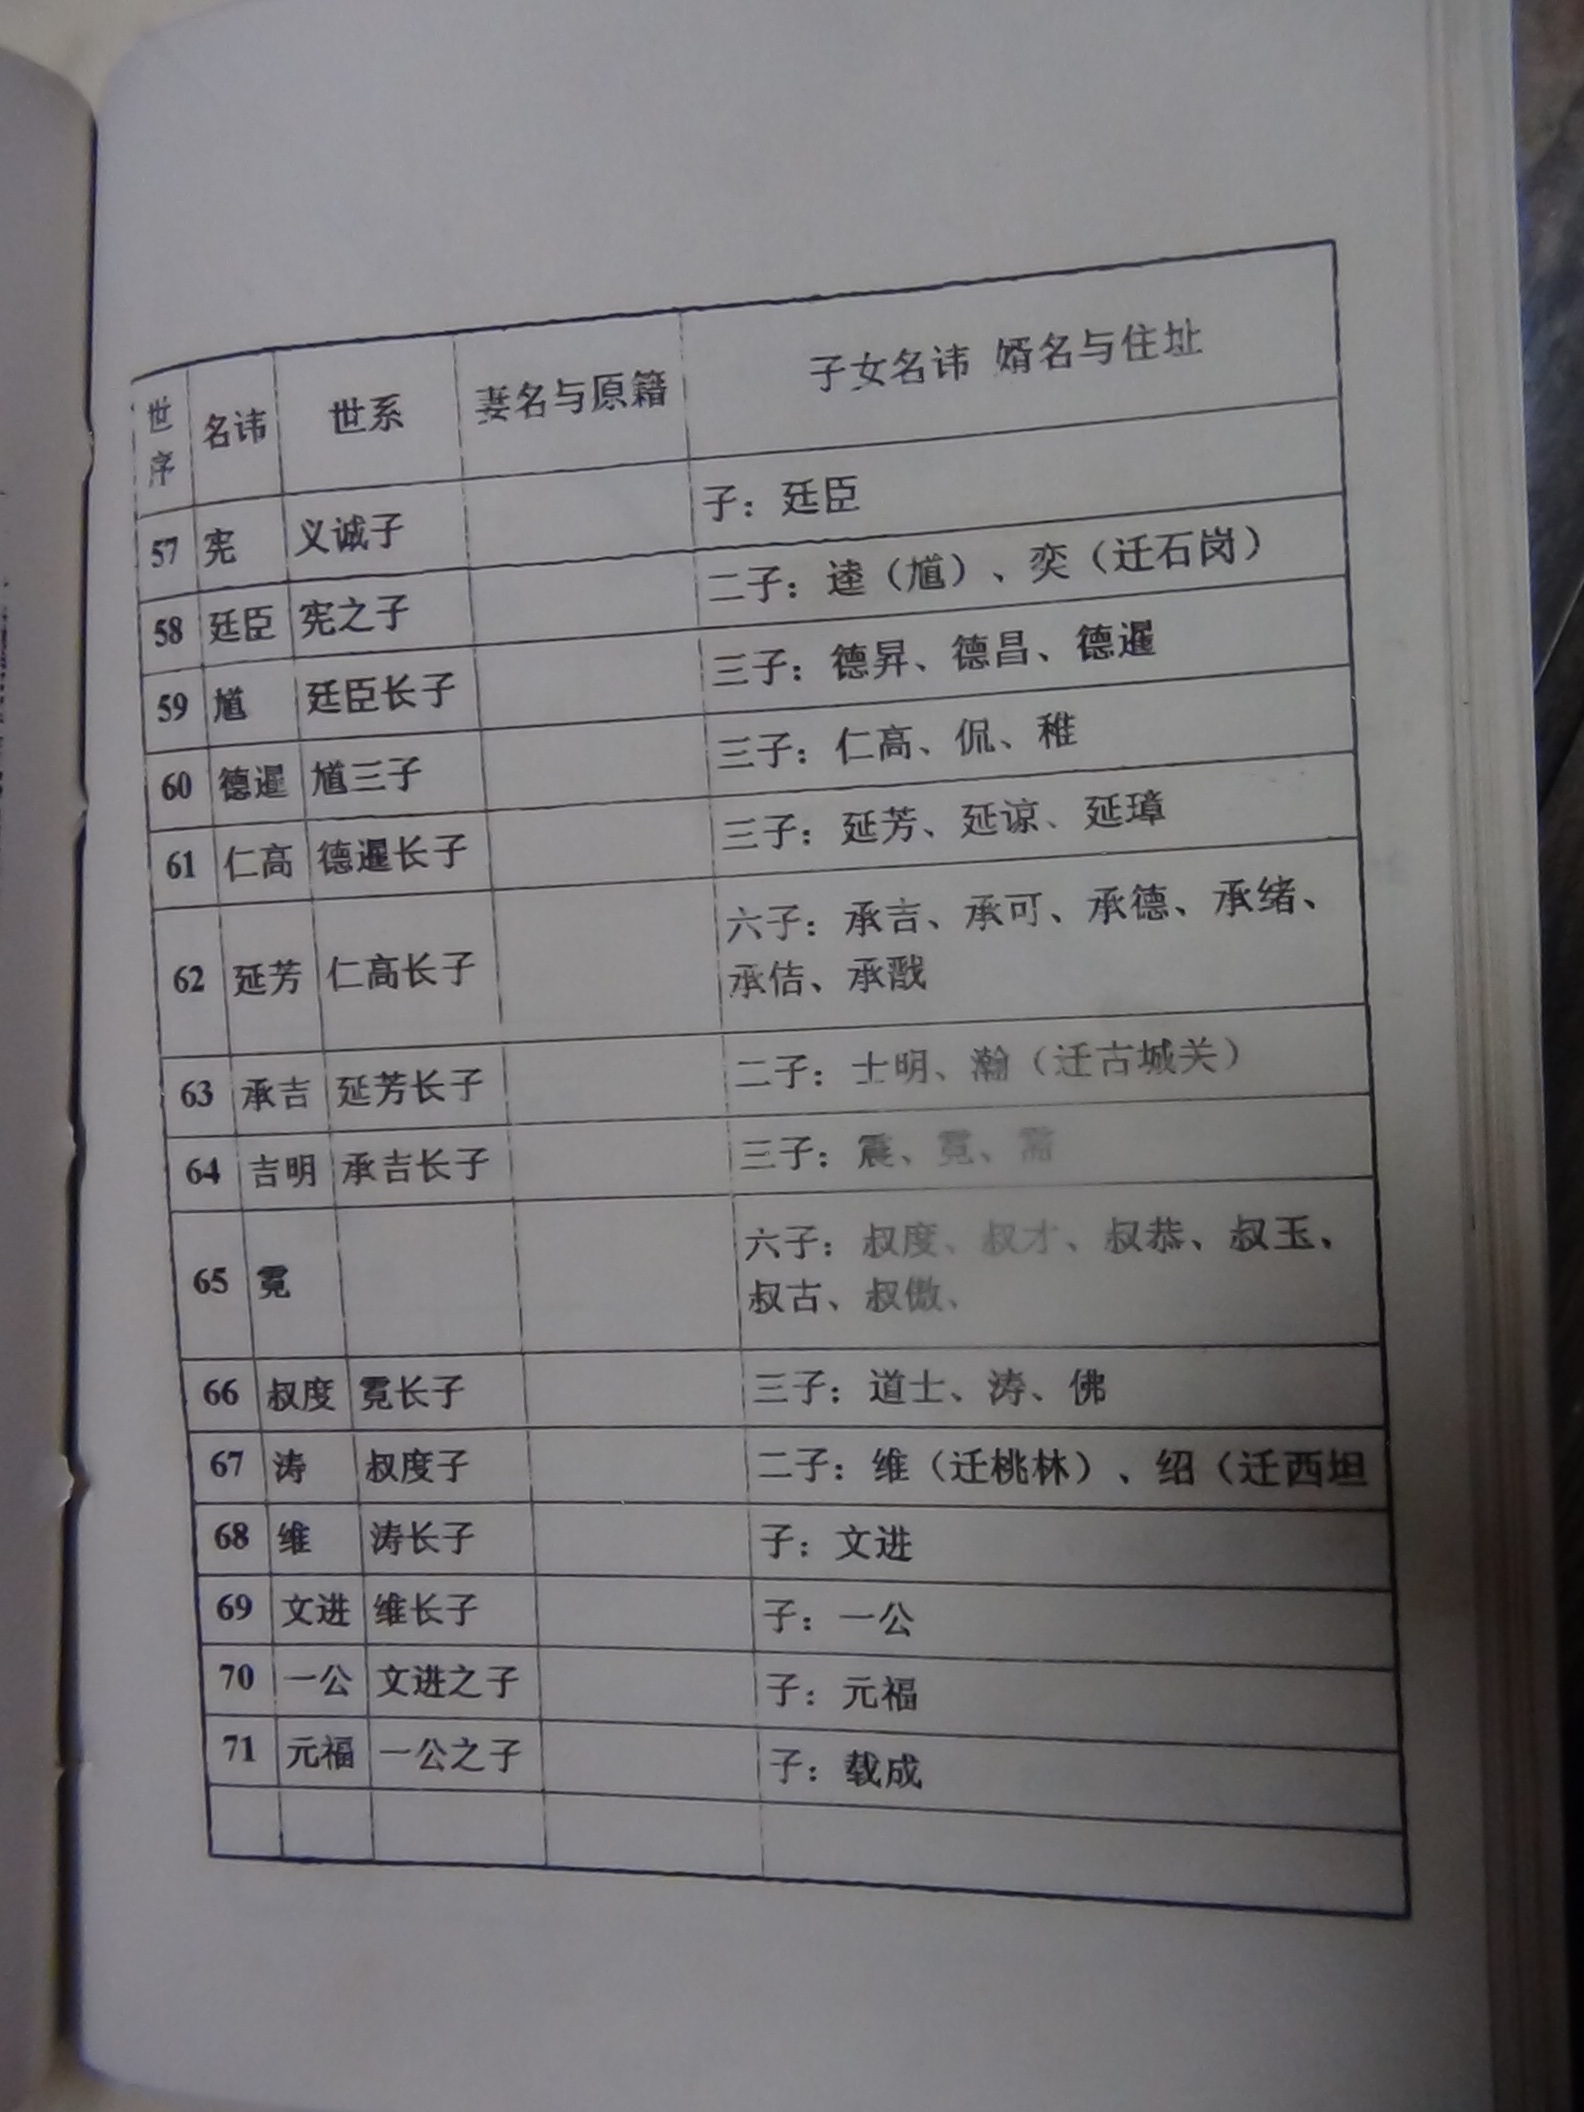 世序 名讳 世系 妻名与原籍 子女名讳 婿名与住址
57 宪 义诚子 子：廷臣
58 廷臣 宪之子 二子：逵（馗）、奕（迁石岗）
59 馗 廷臣长子 三子：德昇、德昌、德暹
60 德暹 馗三子 三子：仁高、侃、稚
61 仁高 德暹长子 三子：延芳、延谅、延璋
62 延芳 仁高长子 六子：承吉、承可、承德、承绪、
承佶、承戬
63 承吉 延芳长子 二子：士明、瀚（迁古城关）
64 吉明 承吉长子 三子：震、霓、霈
65 霓 六子：叔度、叔才、叔恭、叔玉、
叔古、叔傲、
66 叔度 霓长子 三子：道士、涛、佛
67 涛 叔度子 二子：维（迁桃林）、绍（迁西坦
68 维 涛长子 子：文进
69 文进 维长子 子：一公
70 一公 文进之子 子：元福
71 元福 一公之子 子：载成